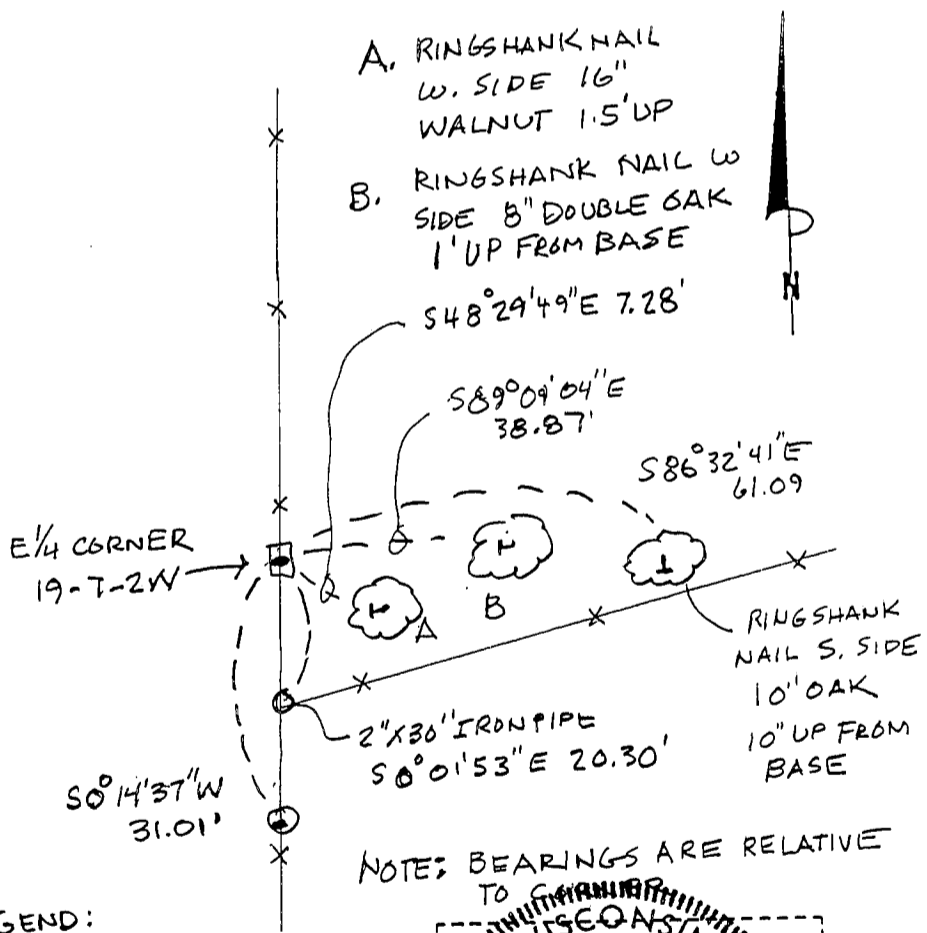 A. RINGSHANK NAIL
W. SIDE 16"
WALNUT 1.5' UP
B. RINGSHANK NAIL W
SIDE 8" DOUBLE OAK
1' UP FROM BASE
N
S48°29'49"E 7.28'
S89°09'04"E
38.87'
S86°32'41"E
61.09
E1/4 CORNER
19-7-2W
A
B
RINGSHANK
NAIL S. SIDE
10" OAK
10" UP FROM
BASE
2"X30" IRON PIPE
S0°01'53"E 20.30'
S0°14'37"W
31.01'
NOTE: BEARINGS ARE RELATIVE
TO
GEND: